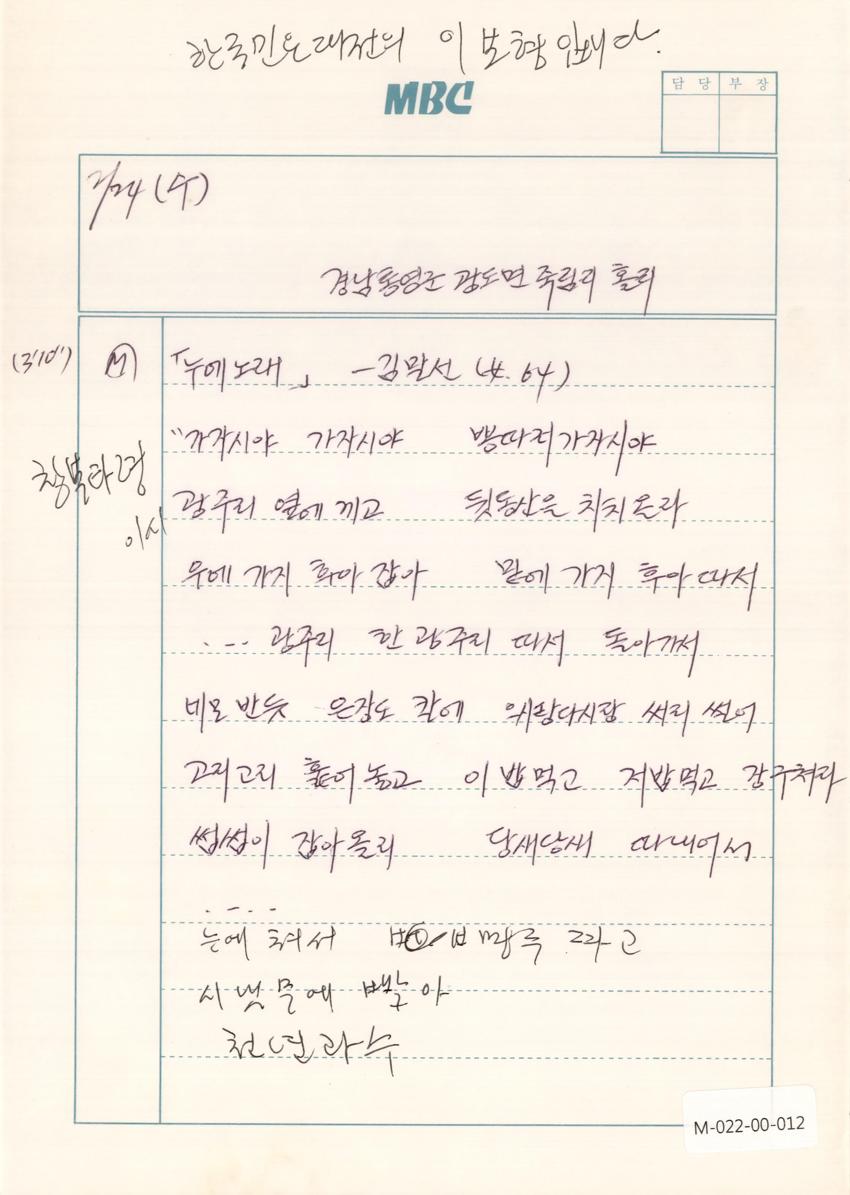 한국민요대전의 이보형입니다.
MBC
담 당 부 장
2/24 (수)
경남통영군 광도면 죽림리 홀리
(3'10") Ⓜ 「누에노래」 -김말선 (女. 64)
"가자시야 가자시야 뽕따러가자시야
창부타령
광주리 옆에 끼고 뒷동산을 치치올라
이시
우에 가지 화아 잡아 밑에 가지 후아 따서
.... 광주리 한 광주리 따서 돌아가서
네모 반듯 은장도 칼에 어시랑다시랑 써리 썰어
고리고리 훑어 놓고 이 밥 먹고 저 밥 먹고 감구쳐라
썹썹이 잡아올리 당새당새 따내어서
.....
누에 쳐서 짜고
시냇물에
천년과수
M-022-00-012